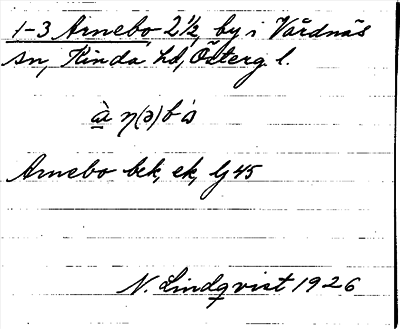 1-3 Arnebo 2½, by i Vårdnäs
sn, Kinda hd, Österg l.
Arnebo bek, ek, Lj 45
N. Lindqvist 1926